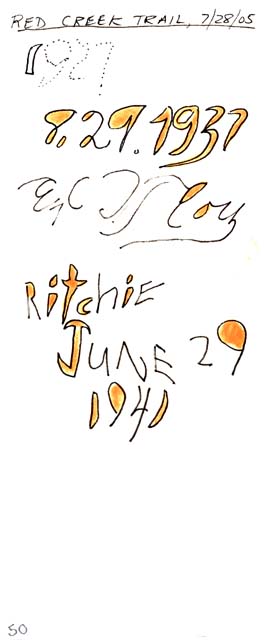 RED CREEK TRAIL, 7/28/05
8.29.1937
Ritchie
JUNE 29
1941
50